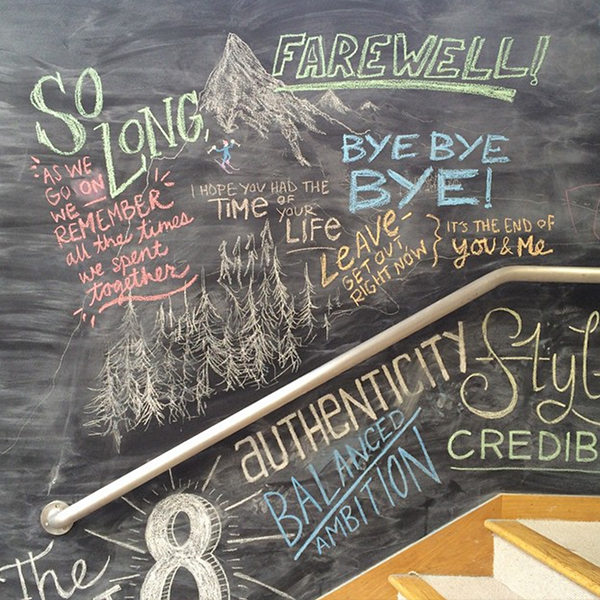 SO
LONG,
FAREWELL!
AS WE
GO ON
WE
REMEMBER
all the times
we spent
together
I HOPE YOU HAD THE
TIME OF
YOUR
LIFE
BYE BYE
BYE!
LEAVE-
GET OUT
RIGHT NOW
IT'S THE END OF
YOU & ME
AUTHENTICITY
BALANCED
AMBITION
Styl
CREDIB
The
8